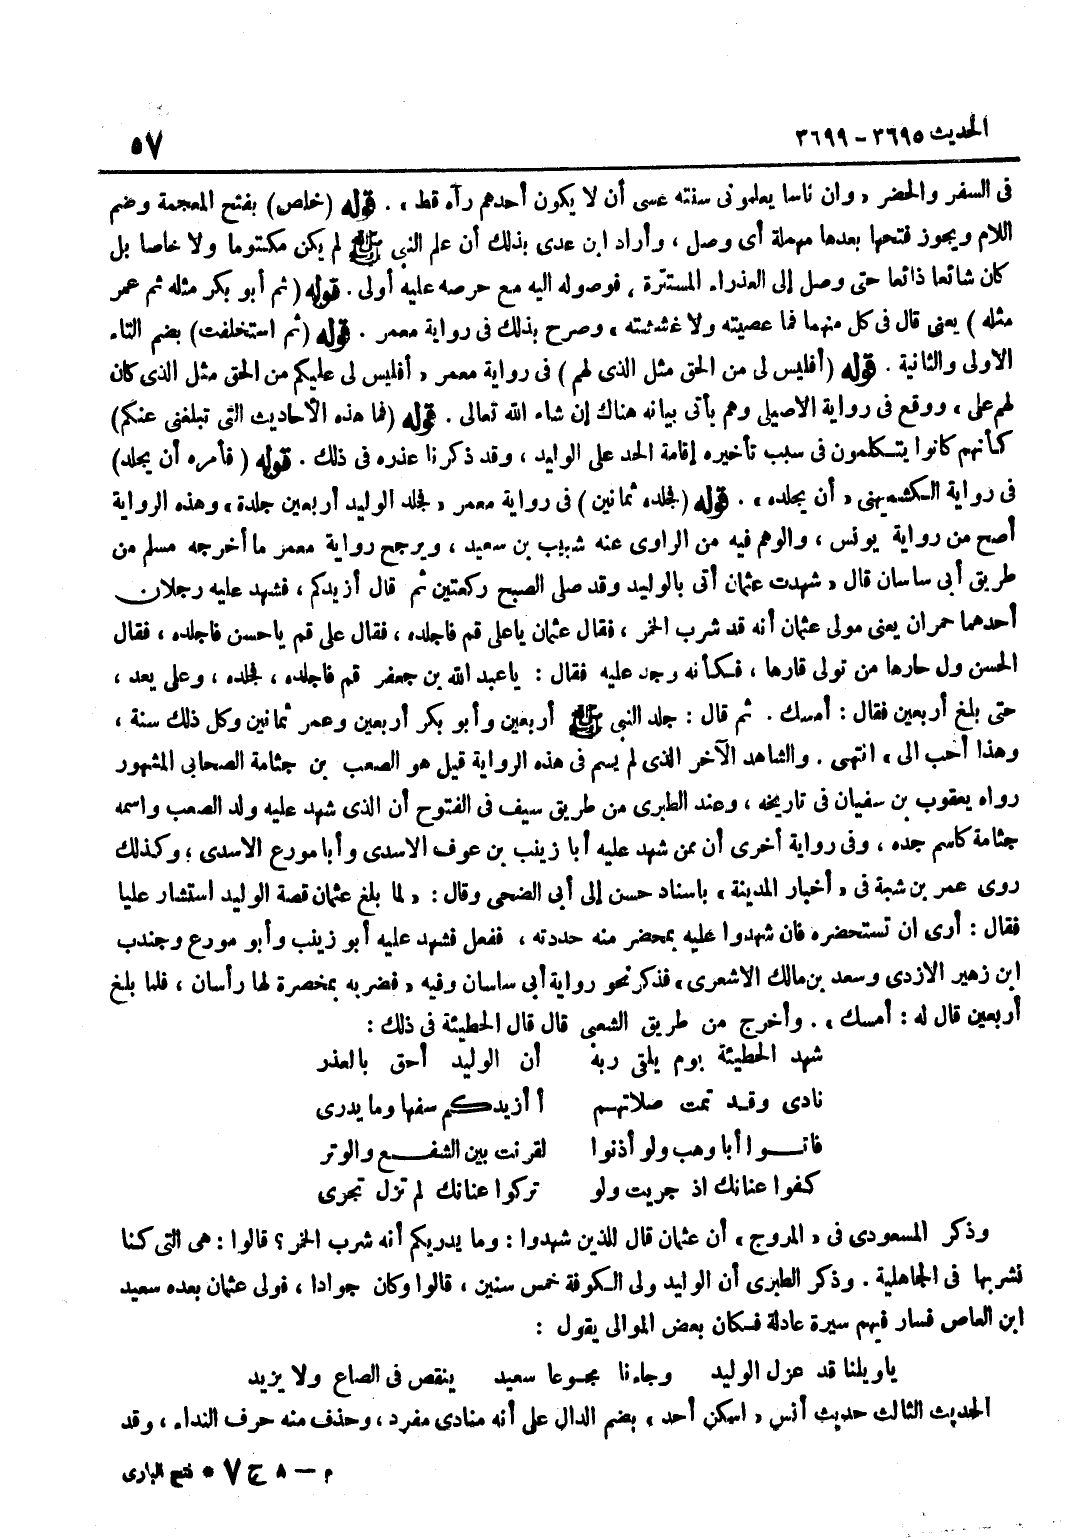 الحديث ٣٦٩٥ - ٣٦٩٩
٥٧
فى السفر والحضر ، وان ناسا يعلمونى سنته عسى أن لا يكون أحدهم رآه قط ، . قوله (خلص) بفتح المعجمة وضم
اللام ويجوز فتحها بعدها مهملة أى وصل ، وأراد ابن عدى بذلك أن علم النبى ﷺ لم يكن مكتوما ولا خاصا بل
كان شائعا ذائعا حتى وصل إلى العذراء المستترة ، فوصوله اليه مع حرصه عليه أولى . قوله (ثم أبو بكر مثله ثم عمر
مثله ) يعنى قال فى كل منهما فما عصيته ولا غششته ، وصرح بذلك فى رواية معمر . قوله (ثم استخلفت) بضم التاء
الاولى والثانية . قوله (أفليس لى من الحق مثل الذى لهم ) فى رواية معمر ، أفليس لى عليكم من الحق مثل الذى كان
لهم على ، ووقع فى رواية الاصيلى وهم يأتى بيانه هناك إن شاء الله تعالى . قوله (فما هذه الأحاديث التى تبلغنى عنكم)
كأنهم كانوا يتكلمون فى سبب تأخيره إقامة الحد على الوليد ، وقد ذكرنا عذره فى ذلك . قوله ( فأمره أن يجلد)
فى رواية الكشميهنى ، أن يجلده ، . قوله (فجلده ثمانين ) فى رواية معمر ، فجلد الوليد أربعين جلدة ، وهذه الرواية
أصح من رواية يونس ، والوهم فيه من الراوى عنه شبيب بن سعيد ، ويرجح رواية معمر ما أخرجه مسلم من
طريق أبى ساسان قال ، شهدت عثمان أتى بالوليد وقد صلى الصبح ركعتين ثم قال أزيدكم ، فشهد عليه رجلان
أحدهما حمران يعنى مولى عثمان أنه قد شرب الخمر ، فقال عثمان ياعلى قم فاجلده ، فقال على قم ياحسن فاجلده ، فقال
الحسن ول حارها من تولى قارها ، فكأنه وجد عليه فقال : ياعبد الله بن جعفر قم فاجلده ، فجلده ، وعلى يعد ،
حتى بلغ أربعين فقال : أمسك . ثم قال : جلد النبى ﷺ أربعين وأبو بكر أربعين وعمر ثمانين وكل ذلك سنة ،
وهذا أحب الى ، انتهى . والشاهد الآخر الذى لم يسم فى هذه الرواية قيل هو الصعب بن جثامة الصحابى المشهور
رواه يعقوب بن سفيان فى تاريخه ، وعند الطبرى من طريق سيف فى الفتوح أن الذى شهد عليه ولد الصعب واسمه
جثامة كاسم جده ، وفى رواية أخرى أن ممن شهد عليه أبا زينب بن عوف الاسدى وأبا مورع الاسدى ؛ وكذلك
روى عمر بن شبة فى ، أخبار المدينة ، باسناد حسن إلى أبى الضحى وقال : ، لما بلغ عثمان قصة الوليد استشار عليا
فقال : أرى ان تستحضره فان شهدوا عليه بمحضر منه حددته ، ففعل فشهد عليه أبو زينب وأبو مورع وجندب
ابن زهير الازدى وسعد بن مالك الاشعرى ، فذكر نحو رواية أبى ساسان وفيه ، فضربه بمخصرة لها رأسان ، فلما بلغ
أربعين قال له : أمسك ، . وأخرج من طريق الشعبى قال قال الحطيئة فى ذلك :
شهد الحطيئة يوم يلقى ربه أن الوليد أحق بالعذر
نادى وقد تمت صلاتهم أأزيدكم سفها وما يدرى
فاتوا أبا وهب ولو أذنوا لقرنت بين الشفع والوتر
كفوا عنانك اذ جريت ولو تركوا عنانك لم تزل تجرى
وذكر المسعودى فى ، المروج ، أن عثمان قال للذين شهدوا : وما يدريكم أنه شرب الخمر ؟ قالوا : هى التى كنا
نشربها فى الجاهلية . وذكر الطبرى أن الوليد ولى الكوفة خمس سنين ، قالوا وكان جوادا ، فولى عثمان بعده سعيد
ابن العاص فسار فيهم سيرة عادلة فكان بعض الموالى يقول :
ياويلنا قد عزل الوليد وجاءنا مجوعا سعيد ينقص فى الصاع ولا يزيد
الحديث الثالث حديث أنس ، اسكن أحد ، بضم الدال على أنه منادى مفرد ، وحذف منه حرف النداء ، وقد
م — ٨ ج ٧ * فتح البارى